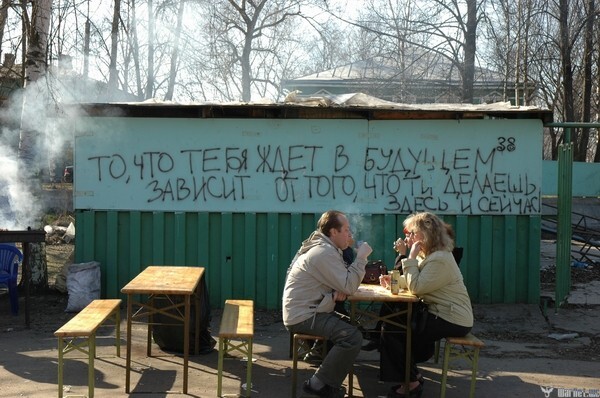 ТО, ЧТО ТЕБЯ ЖДЕТ В БУДУЩЕМ 38
ЗАВИСИТ ОТ ТОГО, ЧТО ТЫ ДЕЛАЕШЬ
ЗДЕСЬ И СЕЙЧАС